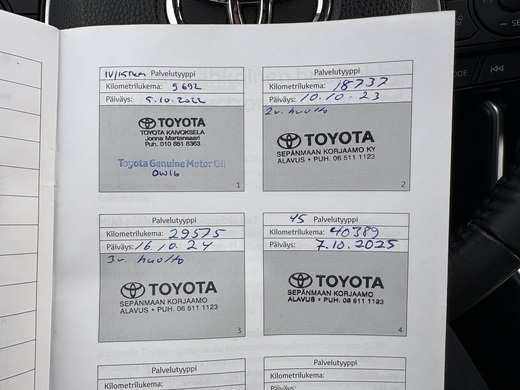 1V/15TKM Palvelutyyppi
Kilometrilukema: 9692
Päiväys: 5.10.2022
TOYOTA
TOYOTA KAIVOKSELA
Puh. 010 851 8363
Toyota Genuine Motor Oil
0W16
1
Palvelutyyppi
Kilometrilukema: 18737
Päiväys: 10.10.23
2v. huolto
TOYOTA
SEPÄNMAAN KORJAAMO KY
ALAVUS • PUH. 06 511 1123
2
Palvelutyyppi
Kilometrilukema: 29575
Päiväys: 16.10.24
3v. huolto
TOYOTA
SEPÄNMAAN KORJAAMO
ALAVUS • PUH. 06 511 1123
3
45 Palvelutyyppi
Kilometrilukema: 40389
Päiväys: 7.10.2025
TOYOTA
SEPÄNMAAN KORJAAMO
ALAVUS • PUH. 06 511 1123
4
Palvelutyyppi
Kilometrilukema:
Palvelutyyppi
Kilometrilukema: